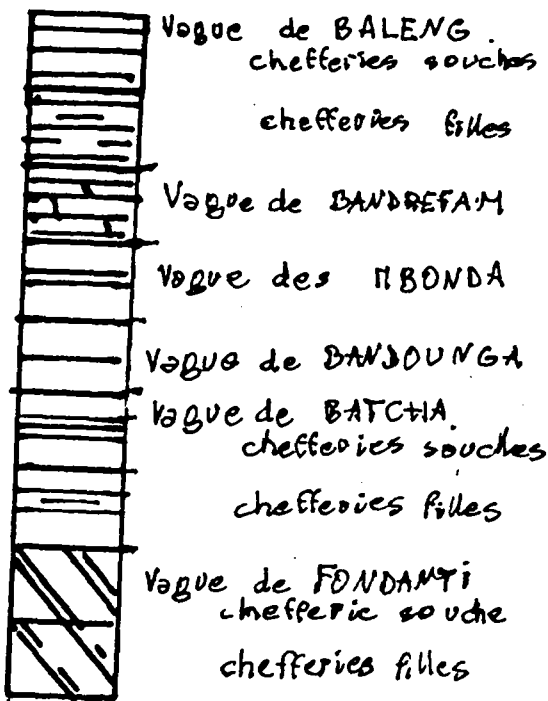 Vague de BALENG.
chefferies souches
chefferies filles
Vague de BANDREFAM
Vague des MBONDA
Vague de BANDOUNGA
Vague de BATCHA.
chefferies souches
chefferies filles
Vague de FONDANTi
chefferie souche
chefferies filles